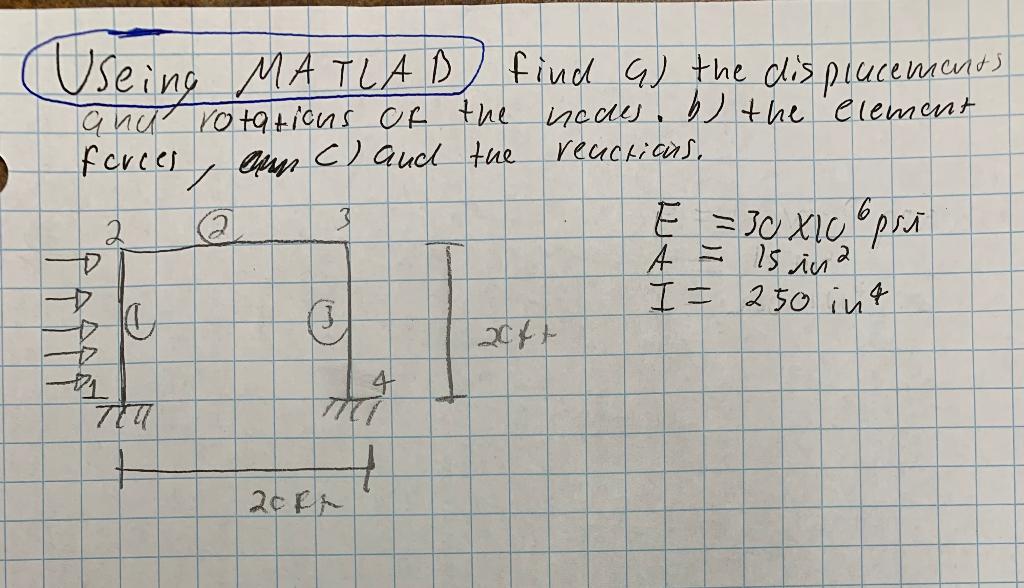 Useing MATLAB find a) the displacements
and rotations of the nodes. b) the element
forces, c) and the reactions.
E = 30 X10^6 psi
A = 15 in^2
I = 250 in^4
2 ② 3
① ③
20ft
1 4
20ft